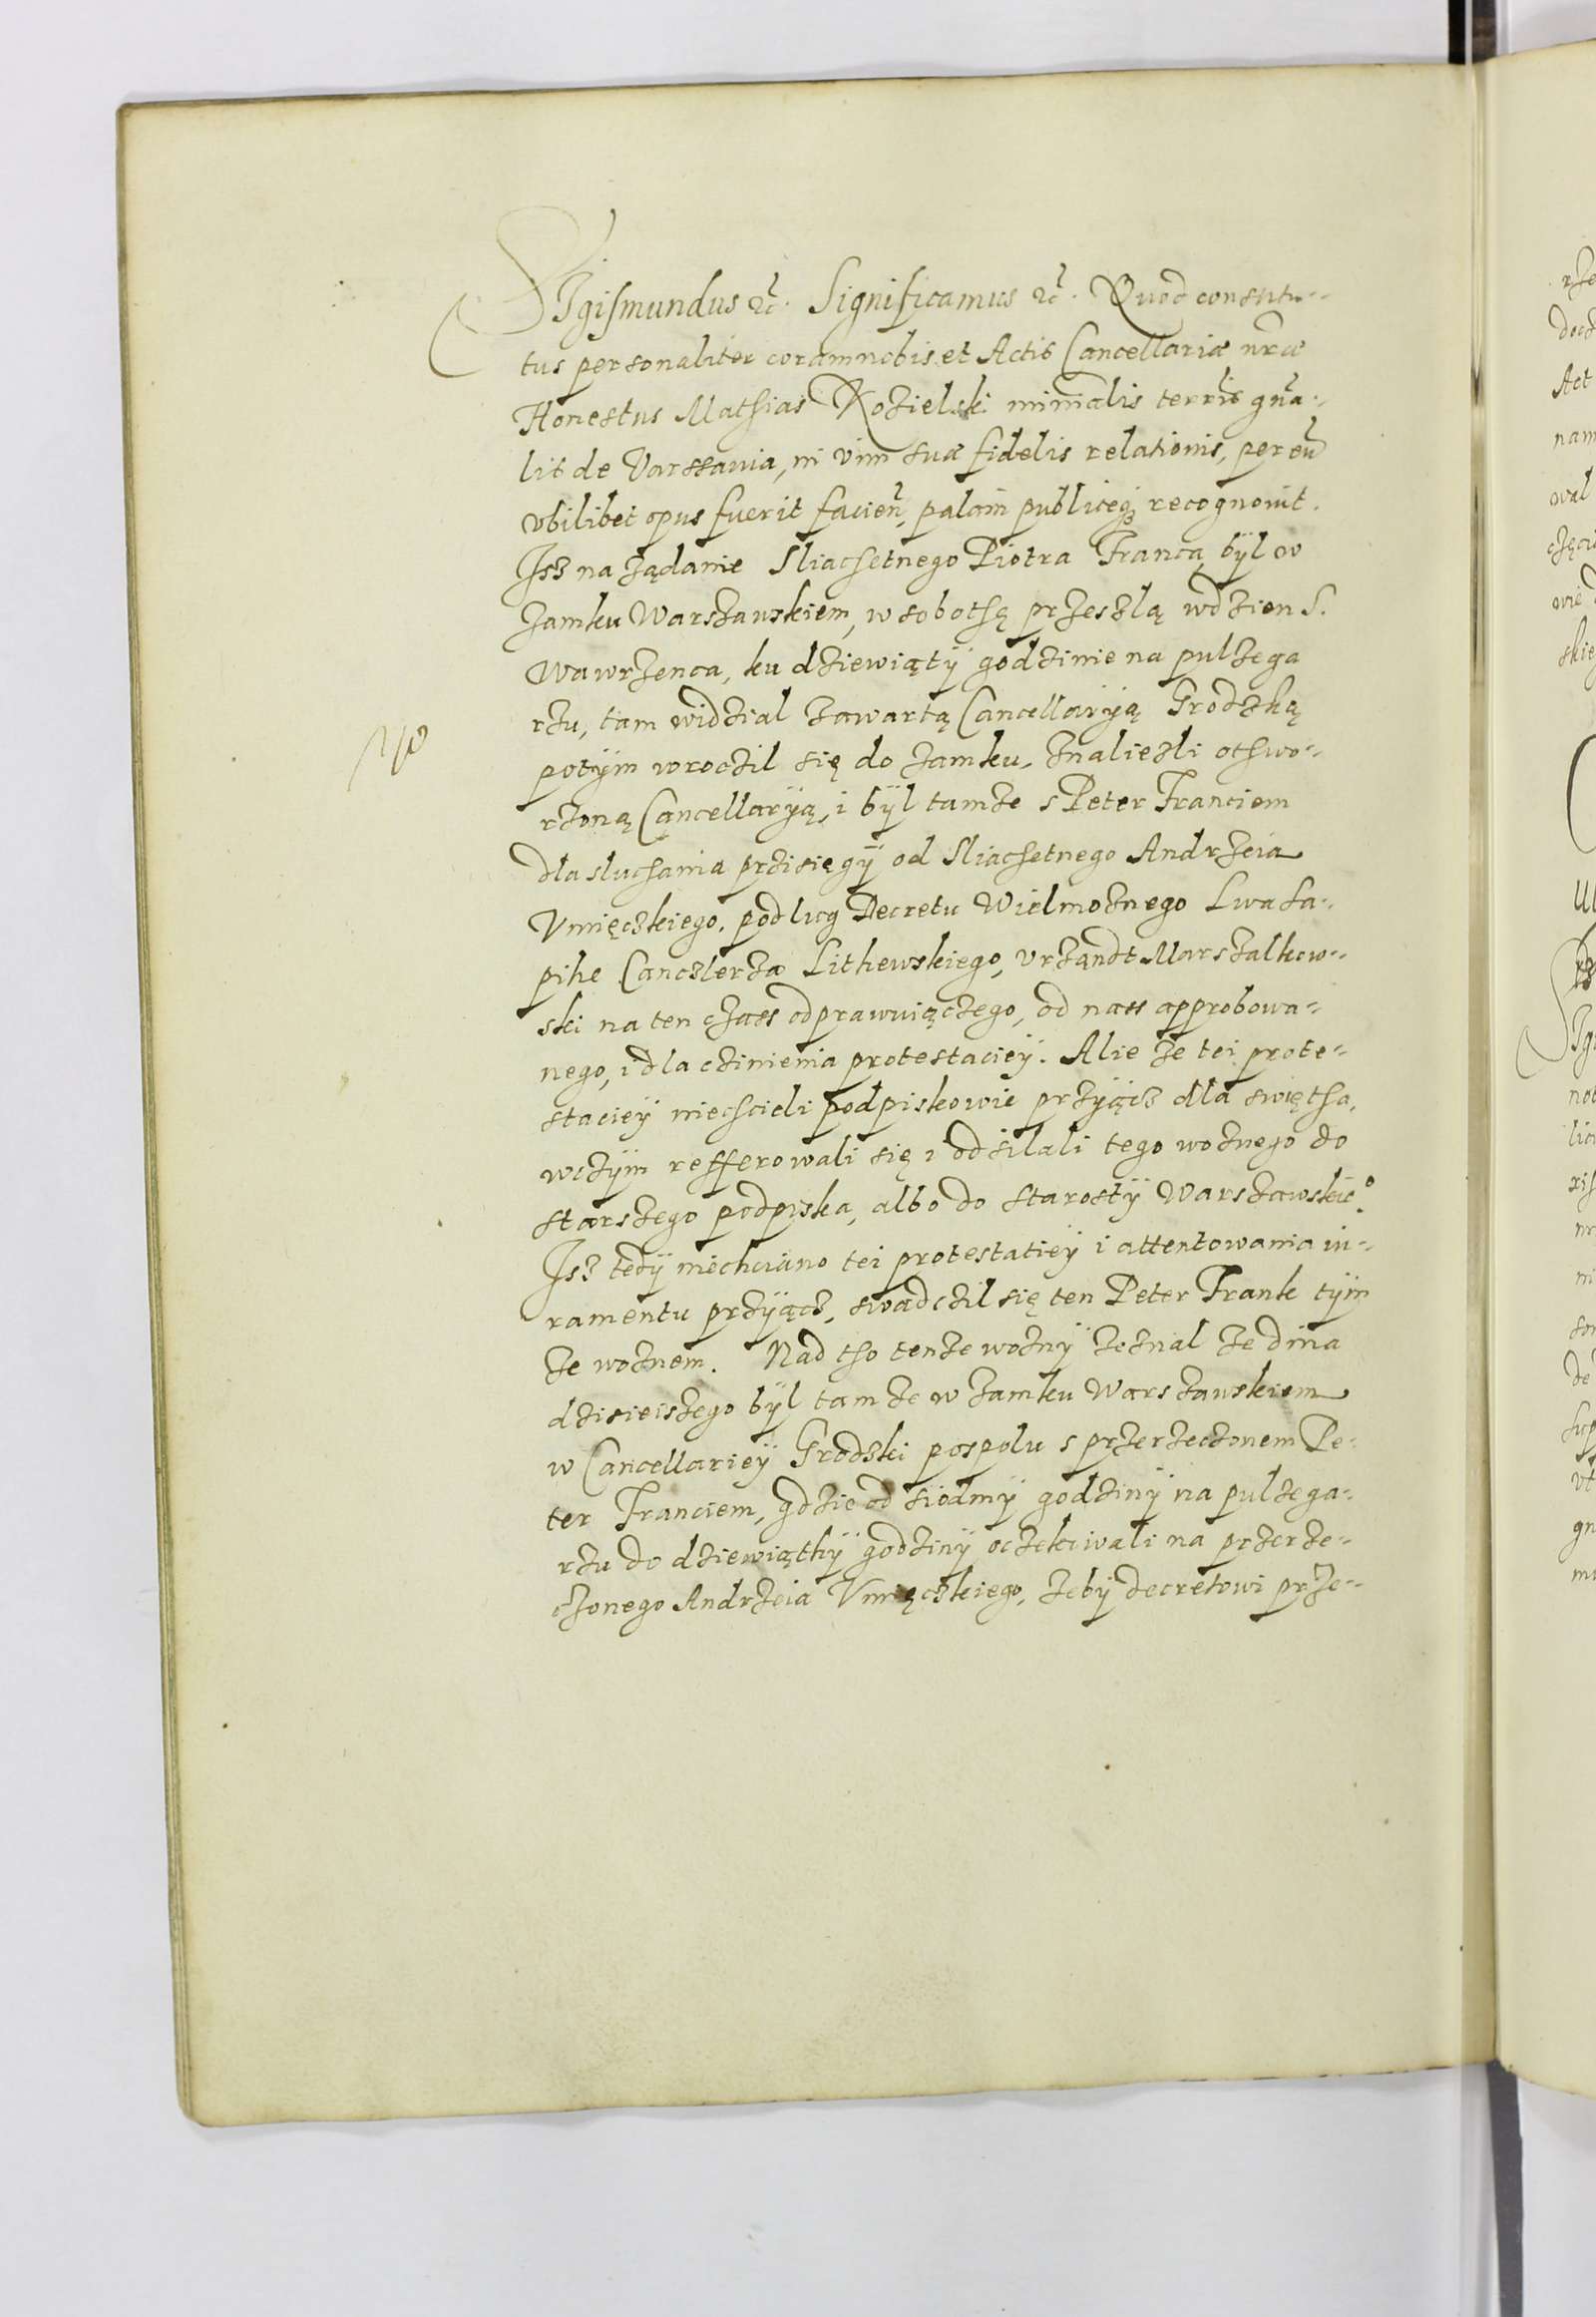 Sigismundus etc. Significamus etc. Quod constitu-
tus personaliter coram nobis et Actis Cancellariæ nræ
Honestus Mathias Kozielski minialis terris gna-
lis de Varssavia, in vim suæ fidelis relationis, per eu
vbilibet opus fuerit facien, palam publiceq recognovit.
Isz na żądanie Sliachetnego Piotra Franca, był w
Zamku Warszavskiem, w sobothę przeszlą w dzien S.
Wawrzenca, ku dziewiąty godzinie na pulzega
rzu, tam widzial zawartą Cancellaryią Grodzką
potym wroczil się do zamku, znalieźli othwo-
rzoną Cancellaryią, i był tamże s Peter Franciem
dla sluchania przisięgy od Sliachetnego Andrzeia
Vmięczkiego, podlug Decretu Wielmożnego Lwa Sa-
pihe Canczlerza Lithewskiego, vrządt Marszalkow-
ski na ten czass odprawuiączego, od nass approbowa-
nego, i dla czinienia protestaciey. Alie że tei prote-
staciey niechcieli podpiskowie przyiącz dla swiętha,
w czym refferowali się i odsilali tego woznego do
starszego podpiska, albo do starosty Warszawskie°.
Isz tedy niechciano tei protestatiey i attentowania iu-
ramentu przyiącz, swadczil się ten Peter Frank tym
że woznem. Nad tho tenże wozny zeznal że dnia
dzisieiszego był tamże w zamku Warszavskiem
w Cancellariey Grodzki pospolu s przerzeczonem Pe-
ter Franciem, gdzie od siodmy godziny na pulzega-
rzu do dziewiąthy godziny oczekiwali na przerze-
czonego Andrzeia Vmięczkiego, żeby decretowi prze-